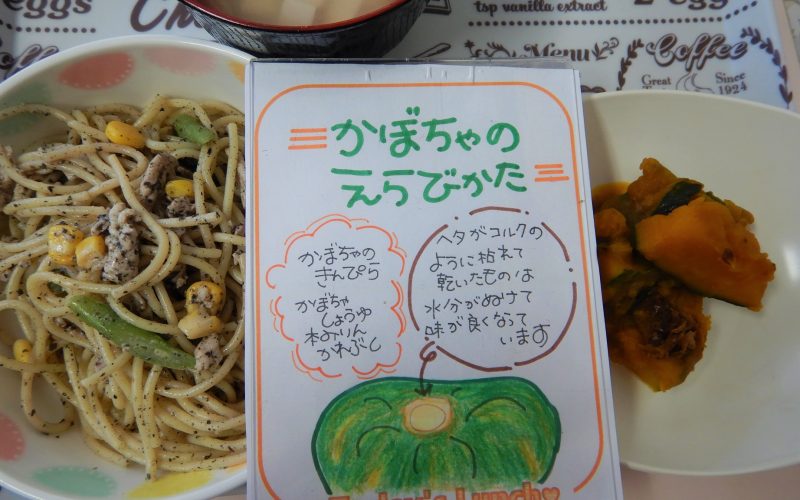 eggs
tsp vanilla extract
2 egg
Menu
Coffee
Great
Since
1924
かぼちゃの
えらびかた
かぼちゃの
きんぴら
かぼちゃ
しょうゆ
本みりん
かれぶし
ヘタがコルクの
ように枯れて
乾いたものは
水分がぬけて
味が良くなって
います
Today's Lunch